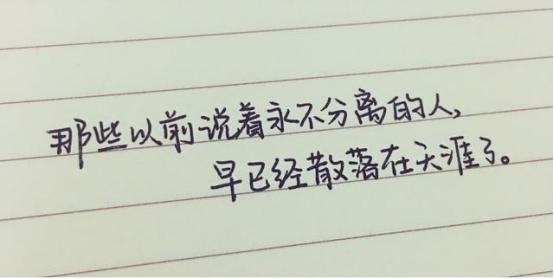 那些以前说着永不分离的人,
早已经散落在天涯了。